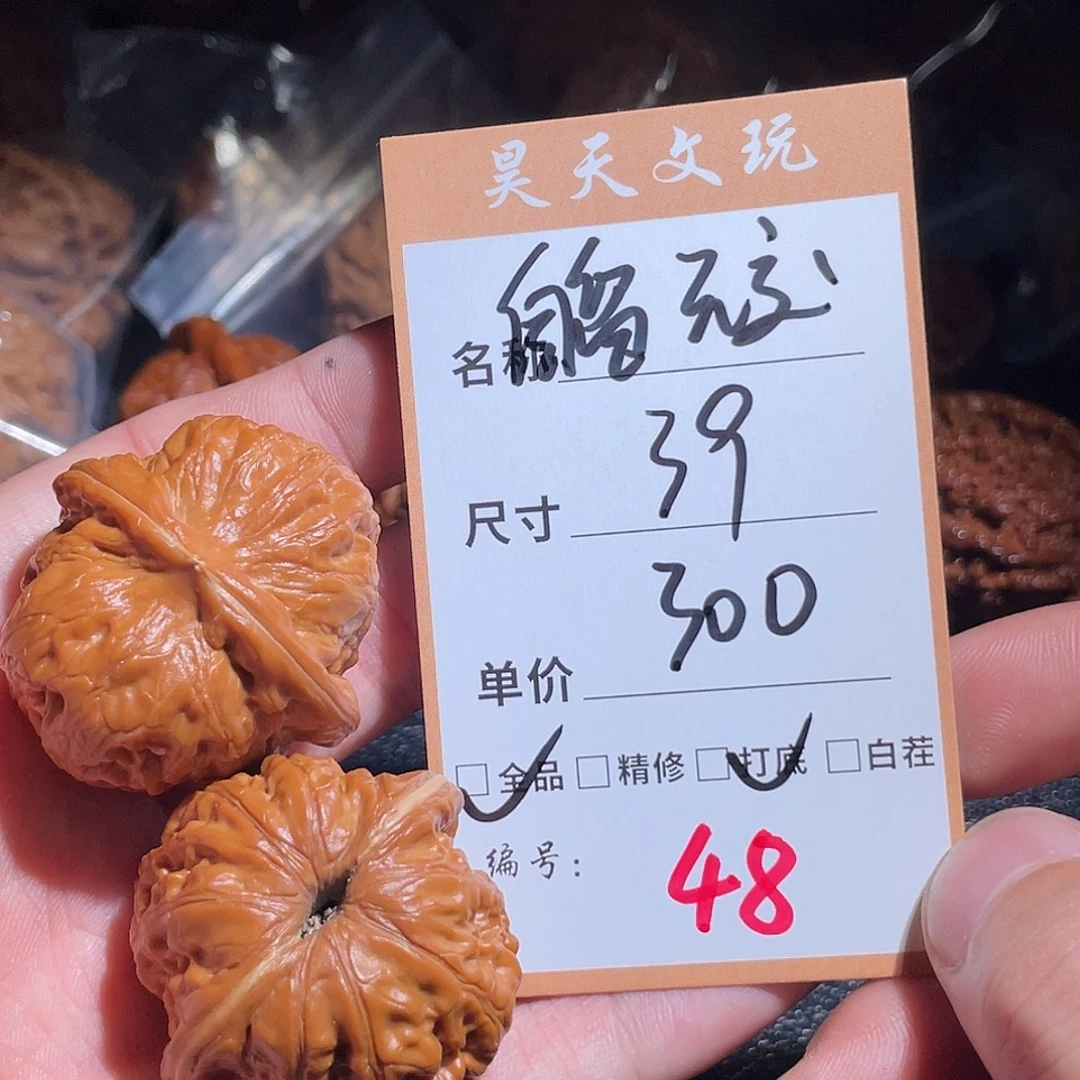 昊天文玩
名称
尺寸 39
单价 300
□全品 □精修 □打底 □白茬
编号: 48